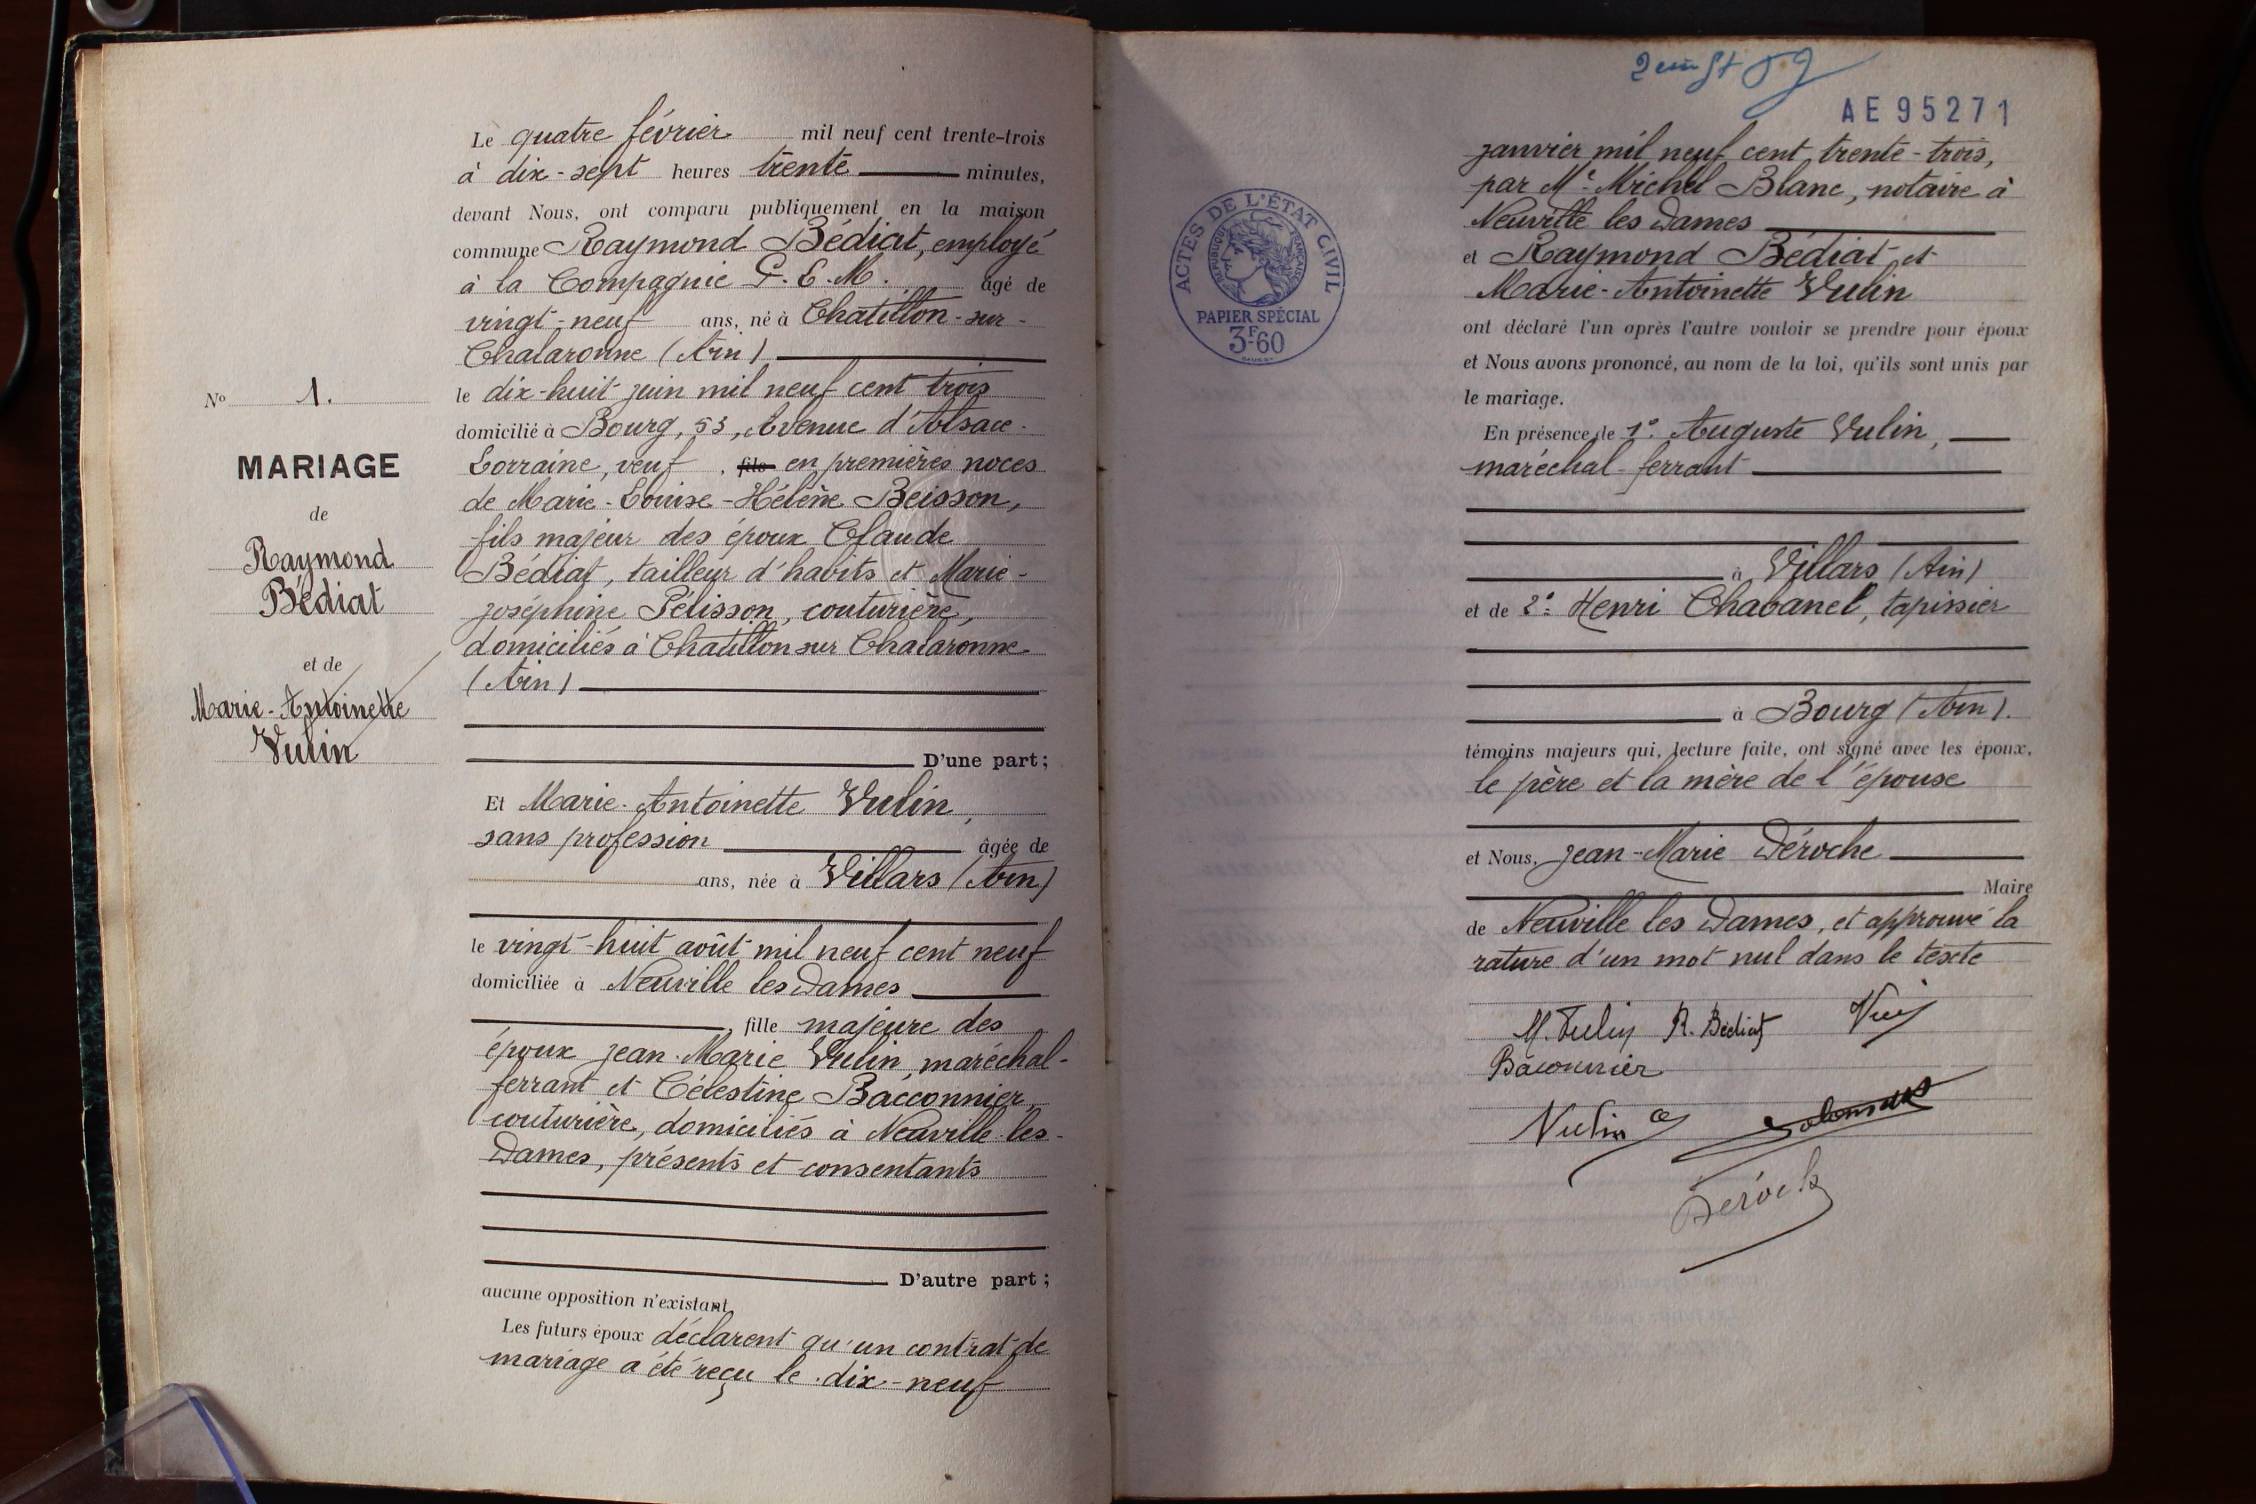 Le quatre février mil neuf cent trente-trois
à dix-sept heures trente minutes,
devant Nous, ont comparu publiquement en la maison
commune Raymond Bédiat, employé
à la Compagnie P.L.M. âgé de
vingt-neuf ans, né à Chatillon-sur-
Chalaronne (Ain)
le dix-huit juin mil neuf cent trois
domicilié à Bourg, 53, Avenue d'Alsace-
Lorraine, veuf fils en premières noces
de Marie-Louise-Hélène Beisson,
fils majeur des époux Claude
Bédiat, tailleur d'habits et Marie-
Joséphine Pélisson, couturière,
domiciliés à Chatillon sur Chalaronne
(Ain)
D'une part;
Et Marie-Antoinette Vulin,
sans profession âgée de
ans, née à Villars (Ain)
le vingt-huit août mil neuf cent neuf
domiciliée à Neuville les Dames
, fille majeure des
époux Jean-Marie Vulin, maréchal-
ferrant et Célestine Bacconnier,
couturière, domiciliés à Neuville-les-
Dames, présents et consentants
D'autre part;
aucune opposition n'existant
Les futurs époux déclarent qu'un contrat de
mariage a été reçu le dix-neuf
No 1.
MARIAGE
de
Raymond
Bédiat
et de
Marie-Antoinette
Vulin
AE 95271
janvier mil neuf cent trente-trois,
par Me Michel Blanc, notaire à
Neuville les Dames
et Raymond Bédiat et
Marie-Antoinette Vulin
ont déclaré l'un après l'autre vouloir se prendre pour époux
et Nous avons prononcé, au nom de la loi, qu'ils sont unis par
le mariage.
En présence de 1° Auguste Vulin,
maréchal-ferrant
à Villars (Ain)
et de 2° Henri Chabanel, tapissier
à Bourg (Ain).
témoins majeurs qui, lecture faite, ont signé avec les époux,
le père et la mère de l'épouse
et Nous, Jean-Marie Déroche
Maire
de Neuville les Dames, et approuvé la
rature d'un mot nul dans le texte
M. Vulin R. Bédiat
Bacconnier
Vulin
Déroche
ACTES DE L'ÉTAT CIVIL
RÉPUBLIQUE FRANÇAISE
PAPIER SPÉCIAL
3F60